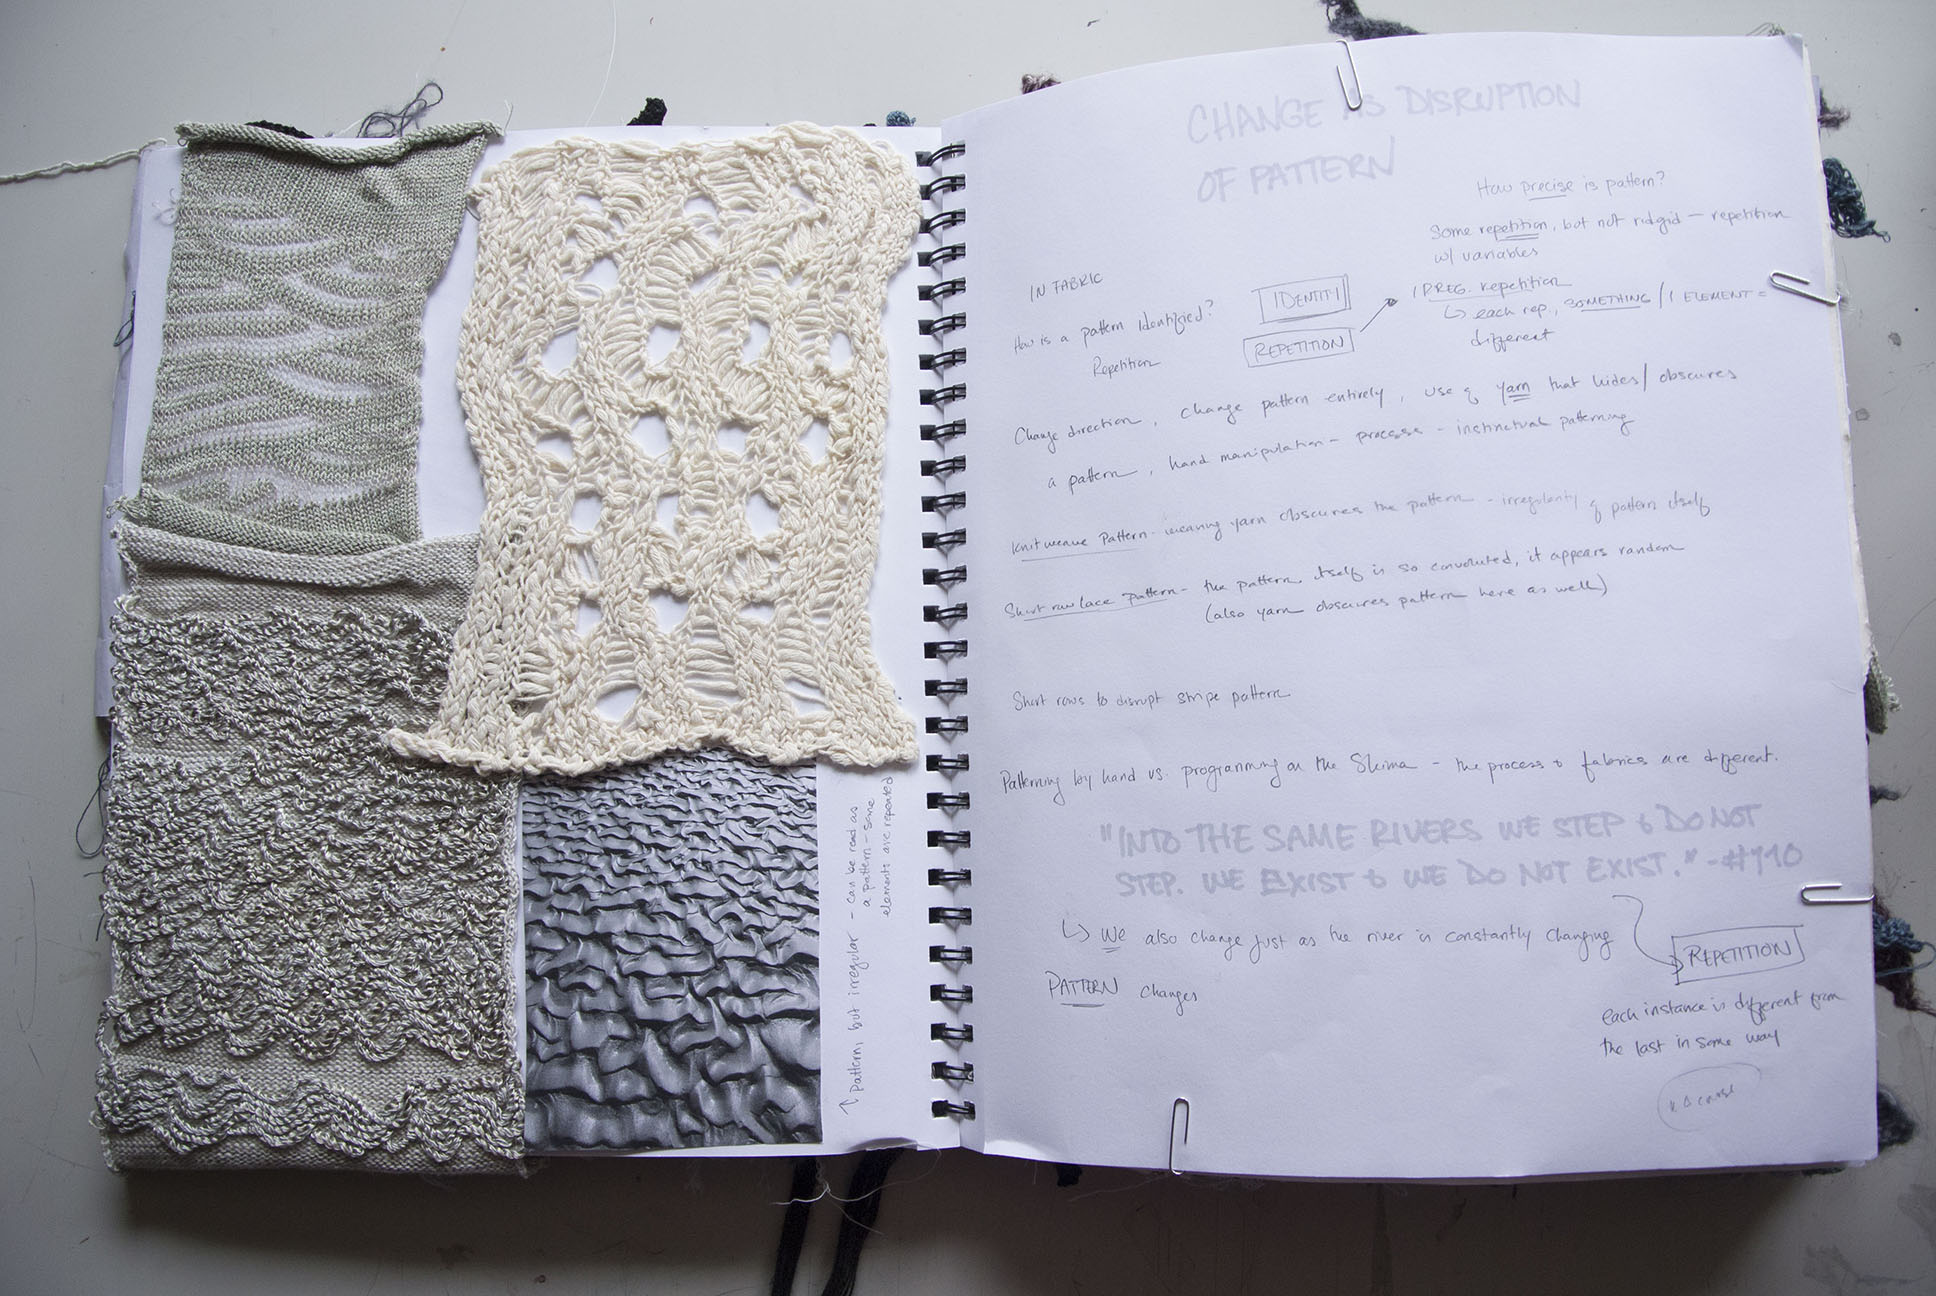 CHANGE AS DISRUPTION
OF PATTERN
How precise is pattern?
Some repetition, but not ridgid — repetition
w/ variables
IN FABRIC
IDENTITY
IRREG. repetition
↳ each rep., SOMETHING / 1 ELEMENT =
different
How is a pattern identified?
Repetition
REPETITION
Change direction, change pattern entirely, use of yarn that hides/obscures
a pattern, hand manipulation - process - instinctual patterning
Knit weave pattern - weaving yarn obscures the pattern - irregularity of pattern itself
Short row lace pattern - the pattern itself is so convoluted, it appears random
(also yarn obscures pattern here as well)
Short rows to disrupt stripe pattern
Patterning by hand vs. programming on the Shima - the process & fabrics are different.
"INTO THE SAME RIVERS WE STEP & DO NOT
STEP. WE EXIST & WE DO NOT EXIST." - #110
↳ We also change just as the river is constantly changing
REPETITION
PATTERN changes
each instance is different from
the last in some way
↑ Pattern, but irregular - can be read as
a pattern - same
elements are repeated